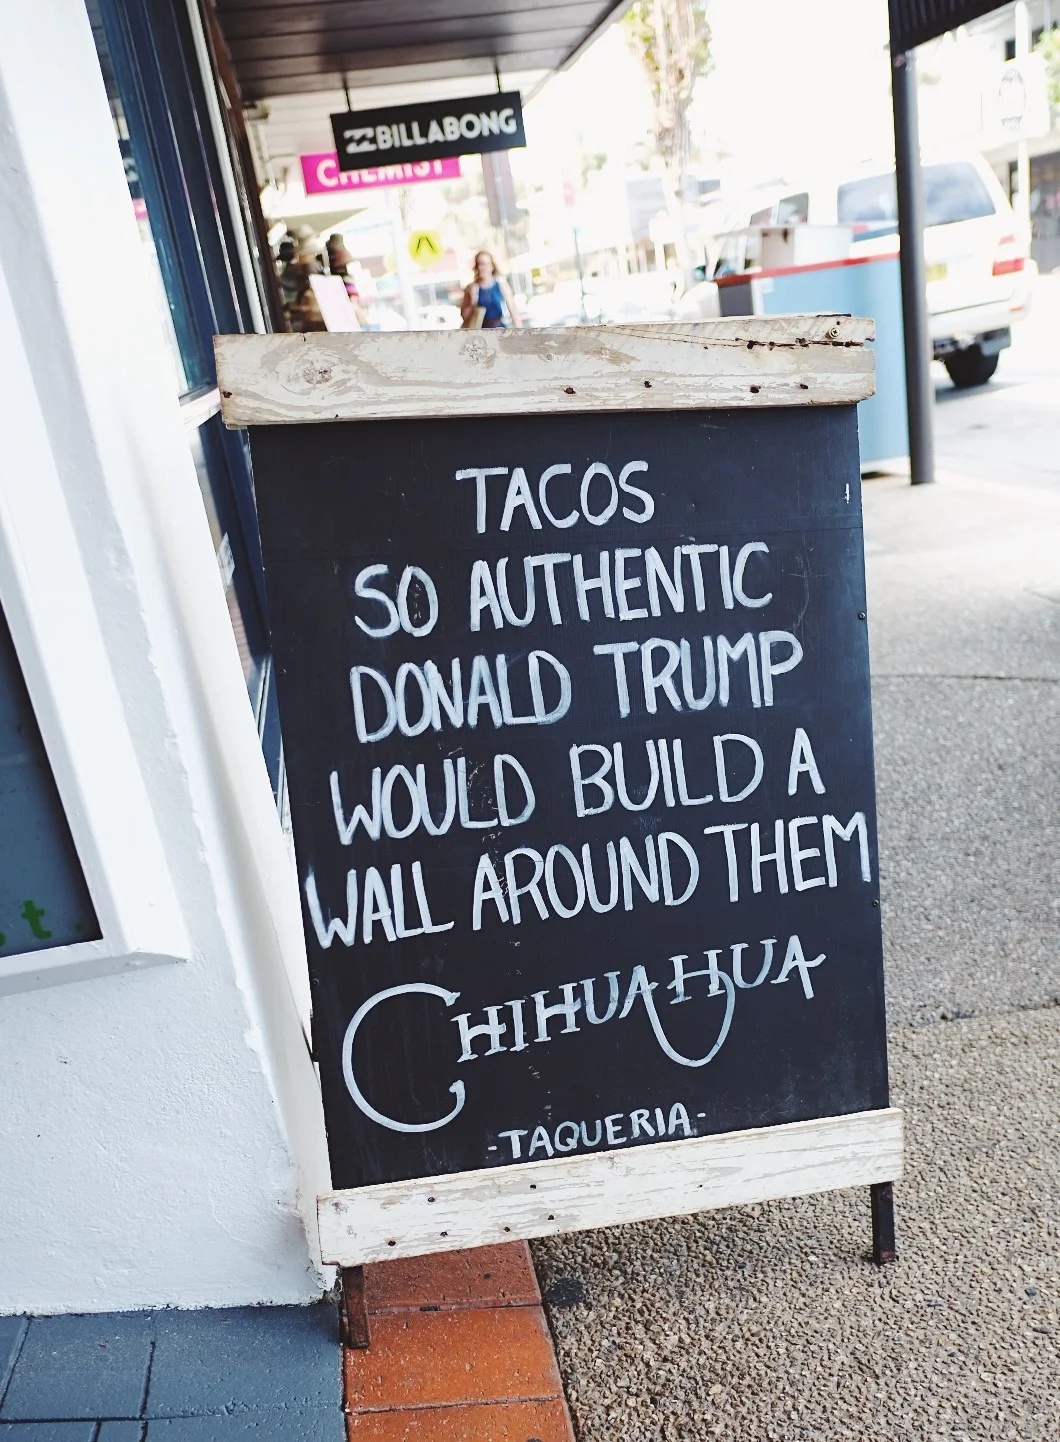 BILLABONG
CHEMIST
TACOS
SO AUTHENTIC
DONALD TRUMP
WOULD BUILD A
WALL AROUND THEM
CHIHUAHUA
-TAQUERIA-
t.